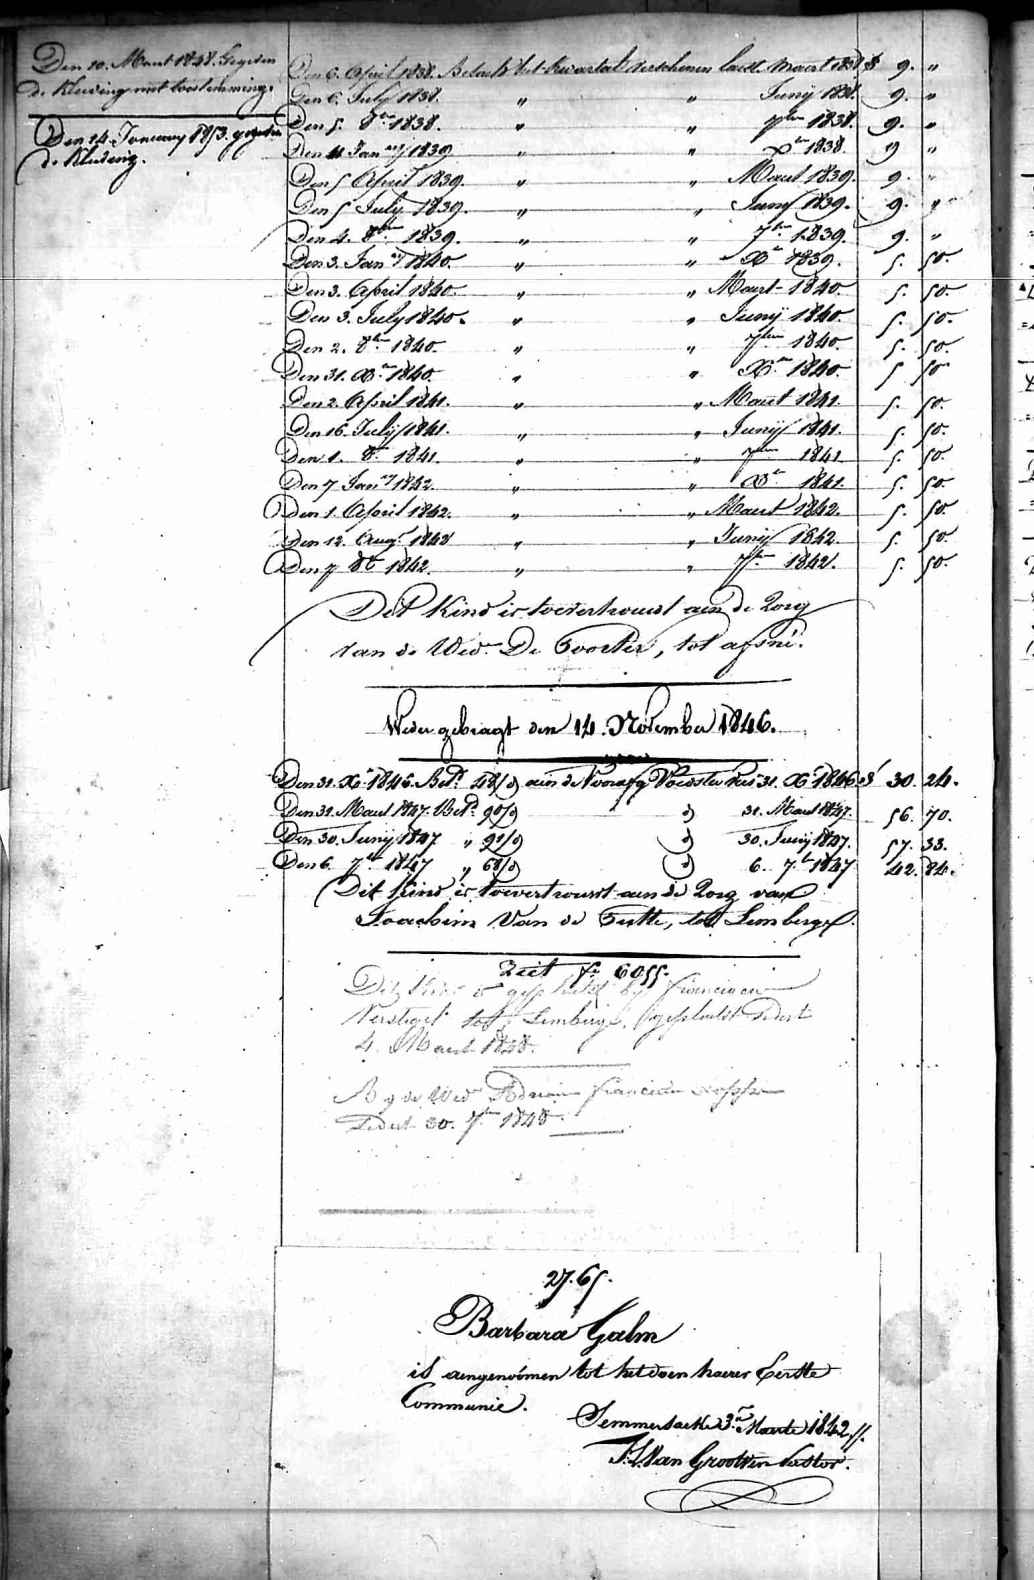 Den 10. Maart 1848. Gegeven
de Kleeding met toestemming.
Den 14. January 1853. gegeven
de Kleeding.
Den 6. April 1838. Betaelt het kwartael verschenen laest Maert 1838 f 9. "
Den 6. July 1838. " " Junij 1838. 9. "
Den 5. 8ber 1838. " " 7ber 1838. 9. "
Den 11 Janry 1839 " " Xber 1838. 9 "
Den 5 April 1839. " " Maert 1839. 9. "
Den 5 July 1839. " " Junij 1839. 9. "
Den 4. 8ber 1839. " " 7ber 1839. 9. "
Den 3. Janry 1840. " " Xber 1839. 5. 50.
Den 3. April 1840. " " Maert 1840. 5. 50.
Den 3. July 1840. " " Junij 1840. 5. 50.
Den 2. 8ber 1840. " " 7ber 1840. 5. 50.
Den 31. Xber 1840. " " Xber 1840. 5 50
Den 2. April 1841. " " Maert 1841. 5. 50.
Den 16. July 1841. " " Junij 1841. 5. 50.
Den 1. 8ber 1841. " " 7ber 1841 5. 50
Den 7 Janry 1842. " " Xber 1841. 5. 50
Den 1. April 1842. " " Maert 1842. 5. 50.
Den 12. Augt 1842 " " Junij 1842. 5. 50.
Den 7 8br 1842. " " 7ber 1842. 5. 50.
Dit Kind is toevertrouwt aen de Zorg
van de Wede De Coorter, tot afsné.
Weder gebragt den 14. November 1846.
Den 31. Xr 1846. Bet. 48/d aen de Voedster tot 31. Xr 1846 f 30. 24.
Den 31. Maert 1847. Bet. 90/d d 31. Maert 1847. 56. 70.
Den 30. Junij 1847 " 91/d d 30. Junij 1847. 57. 33.
Den 6. 7br 1847 " 68/d d 6. 7br 1847 42. 84.
Dit Kind is toevertrouwt aen de Zorg van
Joachim Van de , tot Lemberge.
Ziet f° 6055.
Dit Kind is by francisca
tot Lemberge, sedert
4. Maert 1848.
By de Wede Adriaen
sedert 30. 7ber 1848
27.65.
Barbara Galm
is aengenomen tot het doen haerer Eerste
Communie.
Semmersacke 3en Maerte 1842
Van Grootven Pastor.